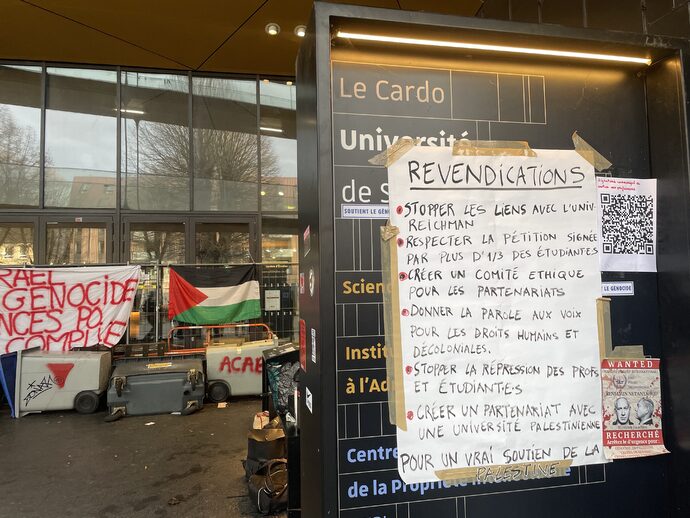 Le Cardo
Université
de S
SOUTIENT LE GÉNOC
Scien
Instit
à l'Ad
Centre
de la Propriété In
REVENDICATIONS
STOPPER LES LIENS AVEC L'UNIV.
REICHMAN
RESPECTER LA PÉTITION SIGNÉE
PAR PLUS D'1/3 DES ÉTUDIANTES
CRÉER UN COMITÉ ETHIQUE
POUR LES PARTENARIATS
DONNER LA PAROLE AUX VOIX
POUR LES DROITS HUMAINS ET
DÉCOLONIALES.
STOPPER LA RÉPRESSION DES PROFS
ET ÉTUDIANT·E·S
CRÉER UN PARTENARIAT AVEC
UNE UNIVERSITÉ PALESTINIENNE
POUR UN VRAI SOUTIEN DE LA
PALESTINE
LE GENOCIDE
WANTED
RECHERCHÉ
RAEL
GENOCIDE
NCES PO
COMPLIE
ACAB